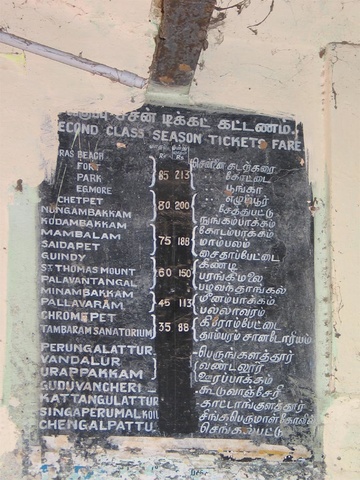 சீசன் டிக்கட் கட்டணம்.
SECOND CLASS SEASON TICKETS FARE
RAS BEACH சென்னை கடற்கரை
FORT கோட்டை
PARK 85 213 பூங்கா
EGMORE எழும்பூர்
CHETPET 80 200 சேத்துபட்டு
NUNGAMBAKKAM நுங்கம்பாக்கம்
KODAMBAKKAM கோடம்பாக்கம்
MAMBALAM 75 188 மாம்பலம்
SAIDAPET சைதாப்பேட்டை
GUINDY கிண்டி
ST THOMAS MOUNT 60 150 பரங்கிமலை
PALAVANTANGAL பழவந்தாங்கல்
MINAMBAKKAM மீனம்பாக்கம்
PALLAVARAM 45 113 பல்லாவரம்
CHROMEPET குரோம்பேட்டை
TAMBARAM SANATORIUM 35 88 தாம்பரம் சானடோரியம்
PERUNGALATTUR பெருங்களத்தூர்
VANDALUR வண்டலூர்
URAPPAKKAM ஊரப்பாக்கம்
GUDUVANCHERI கூடுவாஞ்சேரி
KATTANGULATTUR காட்டாங்குளத்தூர்
SINGAPERUMAL KOIL சிங்கபெருமாள்கோவில்
CHENGALPATTU செங்கல்பட்டு